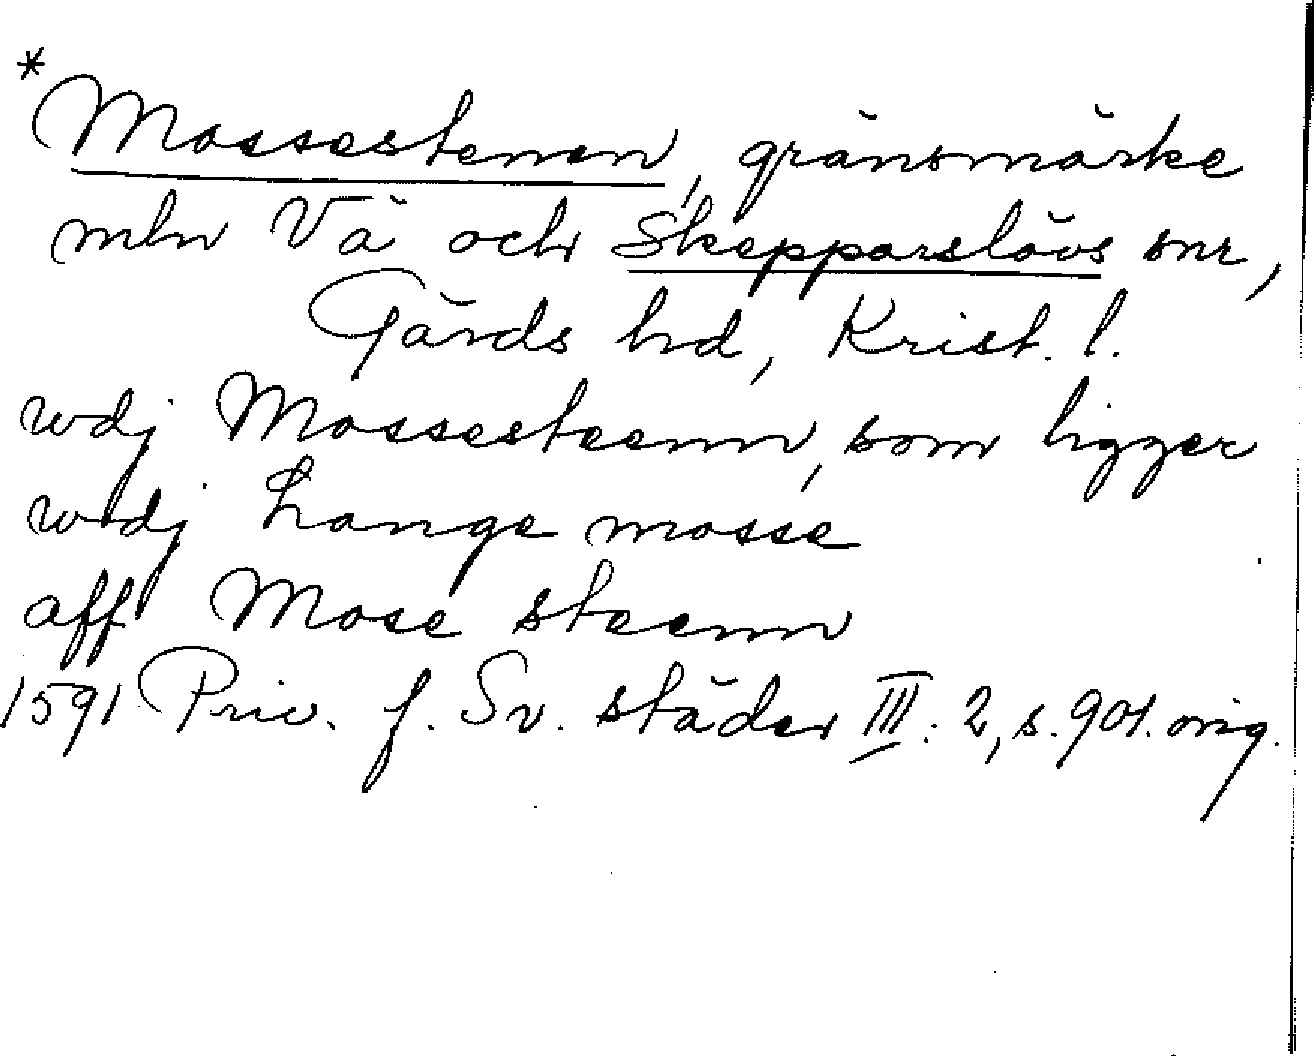 *Mossestenen, gränsmärke
mln Vä och Skepparslövs snr,
Gärds hd, Krist. l.
wdj Mossesteenn, som ligger
wdj Lange mosse
aff Mose steenn
1591 Priv. f. Sv. städer III: 2, s. 901. orig.